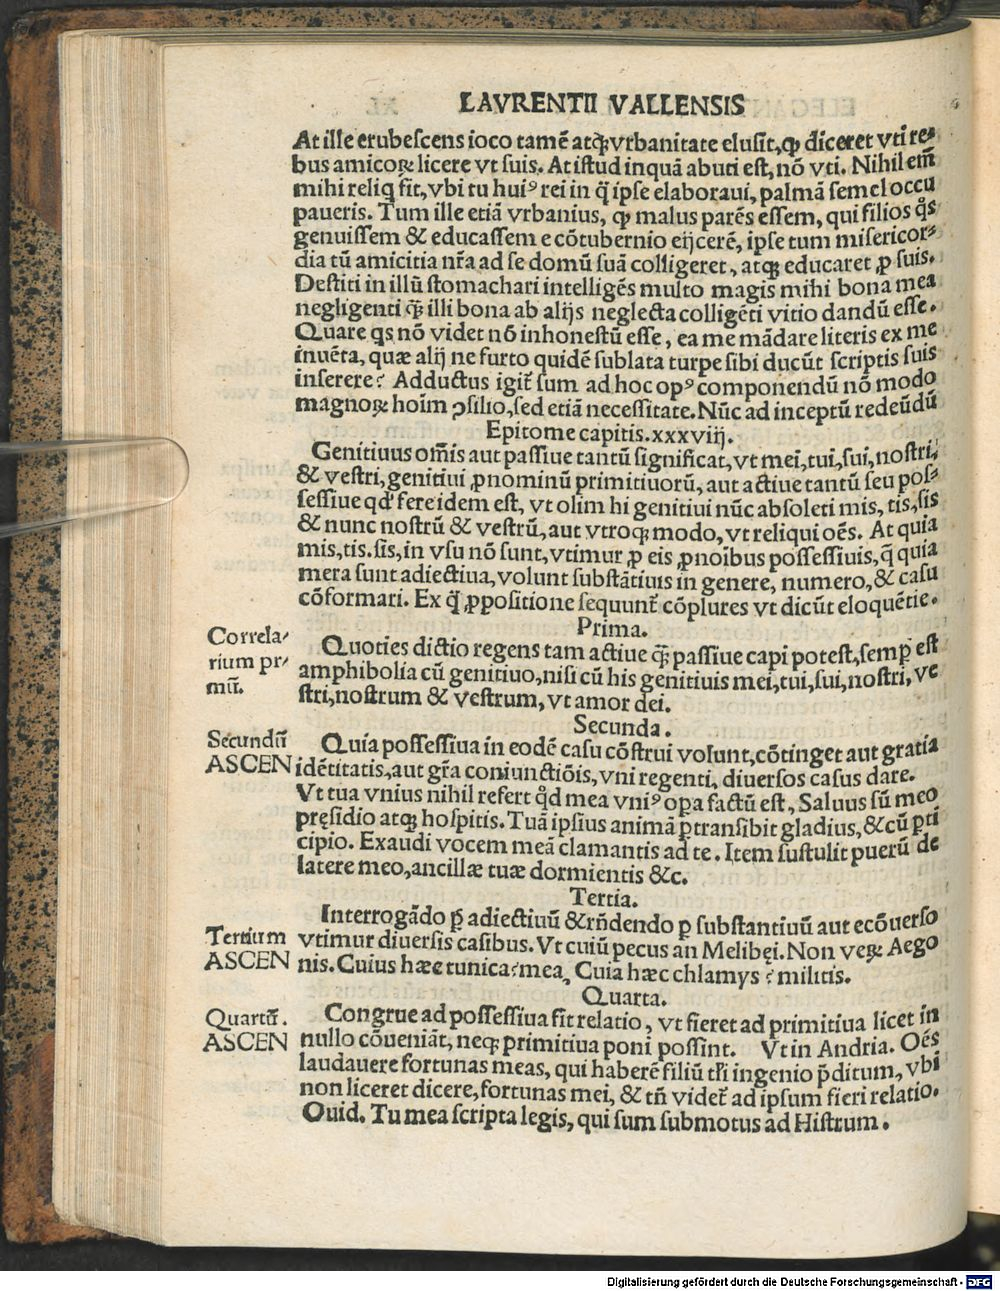 LAVRENTII VALLENSIS
At ille erubescens ioco tamẽ atqꝫ vrbanitate elusit, ꝙ diceret vti re⸗
bus amicoꝝ licere vt suis. At istud inquã abuti est, nõ vti. Nihil em̃
mihi reliq̃ fit, vbi tu huiꝰ rei in q̃ ipse elaboraui, palmã semel occu
paueris. Tum ille etiã vrbanius, ꝙ malus parẽs essem, qui filios q̊s
genuissem & educassem e cõtubernio eijcerẽ, ipse tum misericor⸗
dia tũ amicitia nr̃a ad se domũ suã colligeret, atqꝫ educaret ꝓ suis.
Destiti in illũ stomachari intelligẽs multo magis mihi bona mea
negligenti q̃ꝫ illi bona ab alijs neglecta colligẽti vitio dandũ esse.
Quare qs nõ videt nõ inhonestũ esse, ea me mãdare literis ex me
inuẽta, quæ alij ne furto quidẽ sublata turpe sibi ducũt scriptis suis
inserere? Adductus igit̃ sum ad hoc opꝰ componendũ nõ modo
magnoꝝ hoĩm ꝯsilio, sed etiã necessitate. Nũc ad inceptũ redeũdũ
Epitome capitis. xxxviij.
Genitiuus om̃is aut passiue tantũ significat, vt mei, tui, sui, nostri,
& vestri, genitiui ꝓnominũ primitiuorũ, aut actiue tantũ seu pos⸗
sessiue qd' fere idem est, vt olim hi genitiui nũc absoleti mis, tis, sis
& nunc nostrũ & vestrũ, aut vtroqꝫ modo, vt reliqui oẽs. At quia
mis, tis. sis, in vsu nõ sunt, vtimur ꝓ eis ꝓnoĩbus possessiuis, q̃ quia
mera sunt adiectiua, volunt substãtiuis in genere, numero, & casu
cõformari. Ex q̃ ꝓpositione sequunt̃ cõplures vt dicũt eloquẽtie.
Prima.
Correla⸗
rium pr⸗
mũ.
Quoties dictio regens tam actiue q̃ꝫ passiue capi potest, semꝑ est
amphibolia cũ genitiuo, nisi cũ his genitiuis mei, tui, sui, nostri, ve
stri, nostrum & vestrum, vt amor dei.
Secunda.
Secundũ
ASCEN
Quia possessiua in eodẽ casu cõstrui volunt, cõtinget aut gratia
idẽtitatis, aut gr̃a coniunctiõis, vni regenti, diuersos casus dare.
Vt tua vnius nihil refert q̊d mea vniꝰ opa factũ est, Saluus sũ meo
pręsidio atqꝫ hospitis. Tuã ipsius animã ꝑtransibit gladius, & cũ ꝑti
cipio. Exaudi vocem meã clamantis ad te. Item sustulit puerũ de
latere meo, ancillæ tuæ dormientis &c.
Tertia.
Tertium
ASCEN
Interrogãdo ꝑ adiectiuũ & rñdendo ꝑ substantiuũ aut ecõuerso
vtimur diuersis casibus. Vt cuiũ pecus an Melibęi. Non veꝝ Aego
nis. Cuius hæc tunica? mea, Cuia hæc chlamys? militis.
Quarta.
Quartũ.
ASCEN
Congrue ad possessiua fit relatio, vt fieret ad primitiua licet in
nullo cõueniãt, neqꝫ primitiua poni possint. Vt in Andria. Oẽs
laudauere fortunas meas, qui haberẽ filiũ tl̃i ingenio p̃ditum, vbi
non liceret dicere, fortunas mei, & tñ videt̃ ad ipsum fieri relatio.
Ouid. Tu mea scripta legis, qui sum submotus ad Histrum.
Digitalisierung gefördert durch die Deutsche Forschungsgemeinschaft - DFG